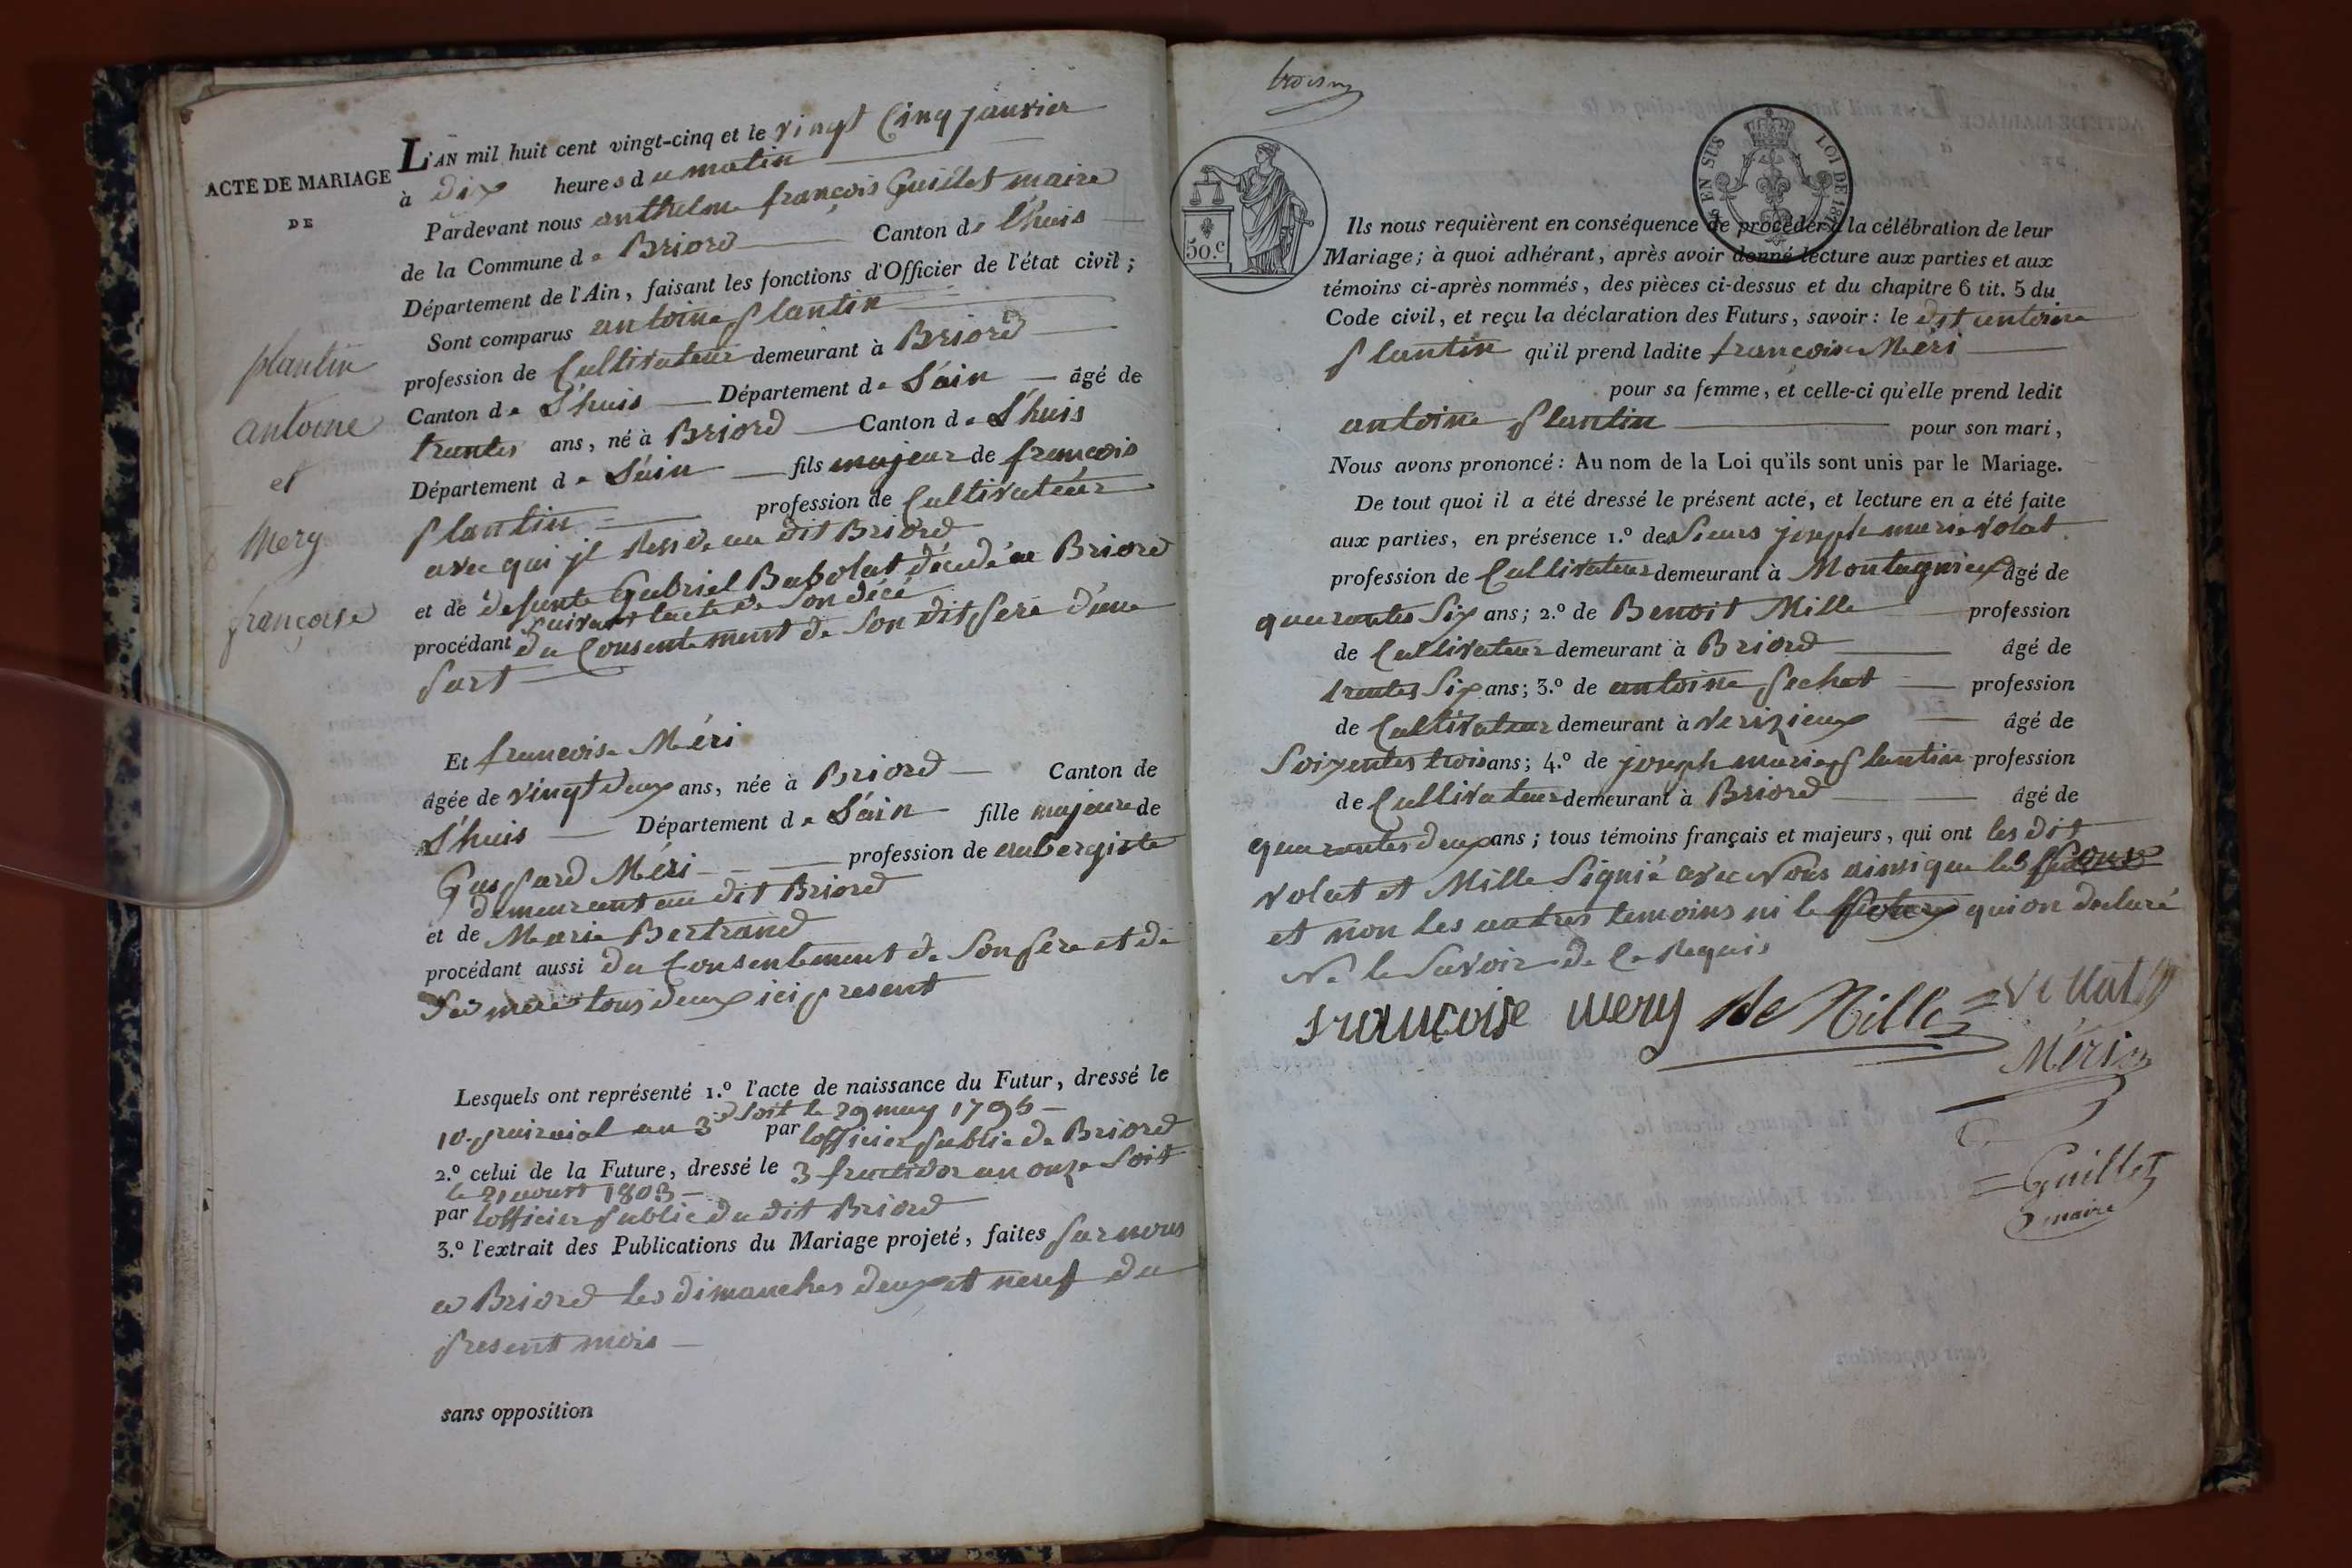 ACTE DE MARIAGE
DE
plantin
antoine
et
Mery
françoise
L'AN mil huit cent vingt-cinq et le vingt Cinq janvier
à Dix heures du matin
Pardevant nous anthelme françois Guillet maire
de la Commune de Briord Canton de l'huis
Département de l'Ain, faisant les fonctions d'Officier de l'état civil;
Sont comparus antoine plantin
profession de Cultivateur demeurant à Briord
Canton de L'huis Département de L'ain âgé de
trantes ans, né à Briord Canton de L'huis
Département de L'ain fils majeur de francois
plantin profession de Cultivateur
avec qui jl Reside au dit Briord
et de defunte Gabriel Babolat décédé a Briord
suivant lacte de son décé
procédant du Consentement de son dit pere d'une
part
Et francoise Méri
âgée de vingt deux ans, née à Briord Canton de
L'huis Département de L'ain fille majeure de
Gaspard Méri profession de aubergiste
demeurant au dit Briord
et de Marie Bertrand
procédant aussi du Consentement de son pere et de
sa mere tous deux ici present
Lesquels ont représenté 1.º l'acte de naissance du Futur, dressé le
10 prairial an 3 soit le 29 may 1795
par lofficier public de Briord
2.º celui de la Future, dressé le 3 fructidor an onze soit
le 21 aoust 1803
par lofficier public du dit Briord
3.º l'extrait des Publications du Mariage projeté, faites par nous
a Briord les dimanches deux et neuf du
present mois
sans opposition
50.c
EN SUS
LOI DE
Ils nous requièrent en conséquence de procéder à la célébration de leur
Mariage; à quoi adhérant, après avoir donné lecture aux parties et aux
témoins ci-après nommés, des pièces ci-dessus et du chapitre 6 tit. 5 du
Code civil, et reçu la déclaration des Futurs, savoir: le dit antoine
plantin qu'il prend ladite françoise Meri
pour sa femme, et celle-ci qu'elle prend ledit
antoine plantin pour son mari,
Nous avons prononcé: Au nom de la Loi qu'ils sont unis par le Mariage.
De tout quoi il a été dressé le présent acte, et lecture en a été faite
aux parties, en présence 1.º des Sieurs joseph marie volat
profession de Cultivateur demeurant à Montagnieux âgé de
quarantes six ans; 2.º de Benoit Mille profession
de Cultivateur demeurant à Briord âgé de
trentes six ans; 3.º de antoine pechet profession
de Cultivateur demeurant à verizieux âgé de
soixentes trois ans; 4.º de joseph marie plantin profession
de Cultivateur demeurant à Briord âgé de
quarantes deux ans; tous témoins français et majeurs, qui ont les dit
volat et Mille signié avec nous ainsi que les
et non les autres temoins ni le futur qui on declaré
Ne le savoir de ce Requis
francoise mery Be Mille vollat
Méri
Guillet
maire